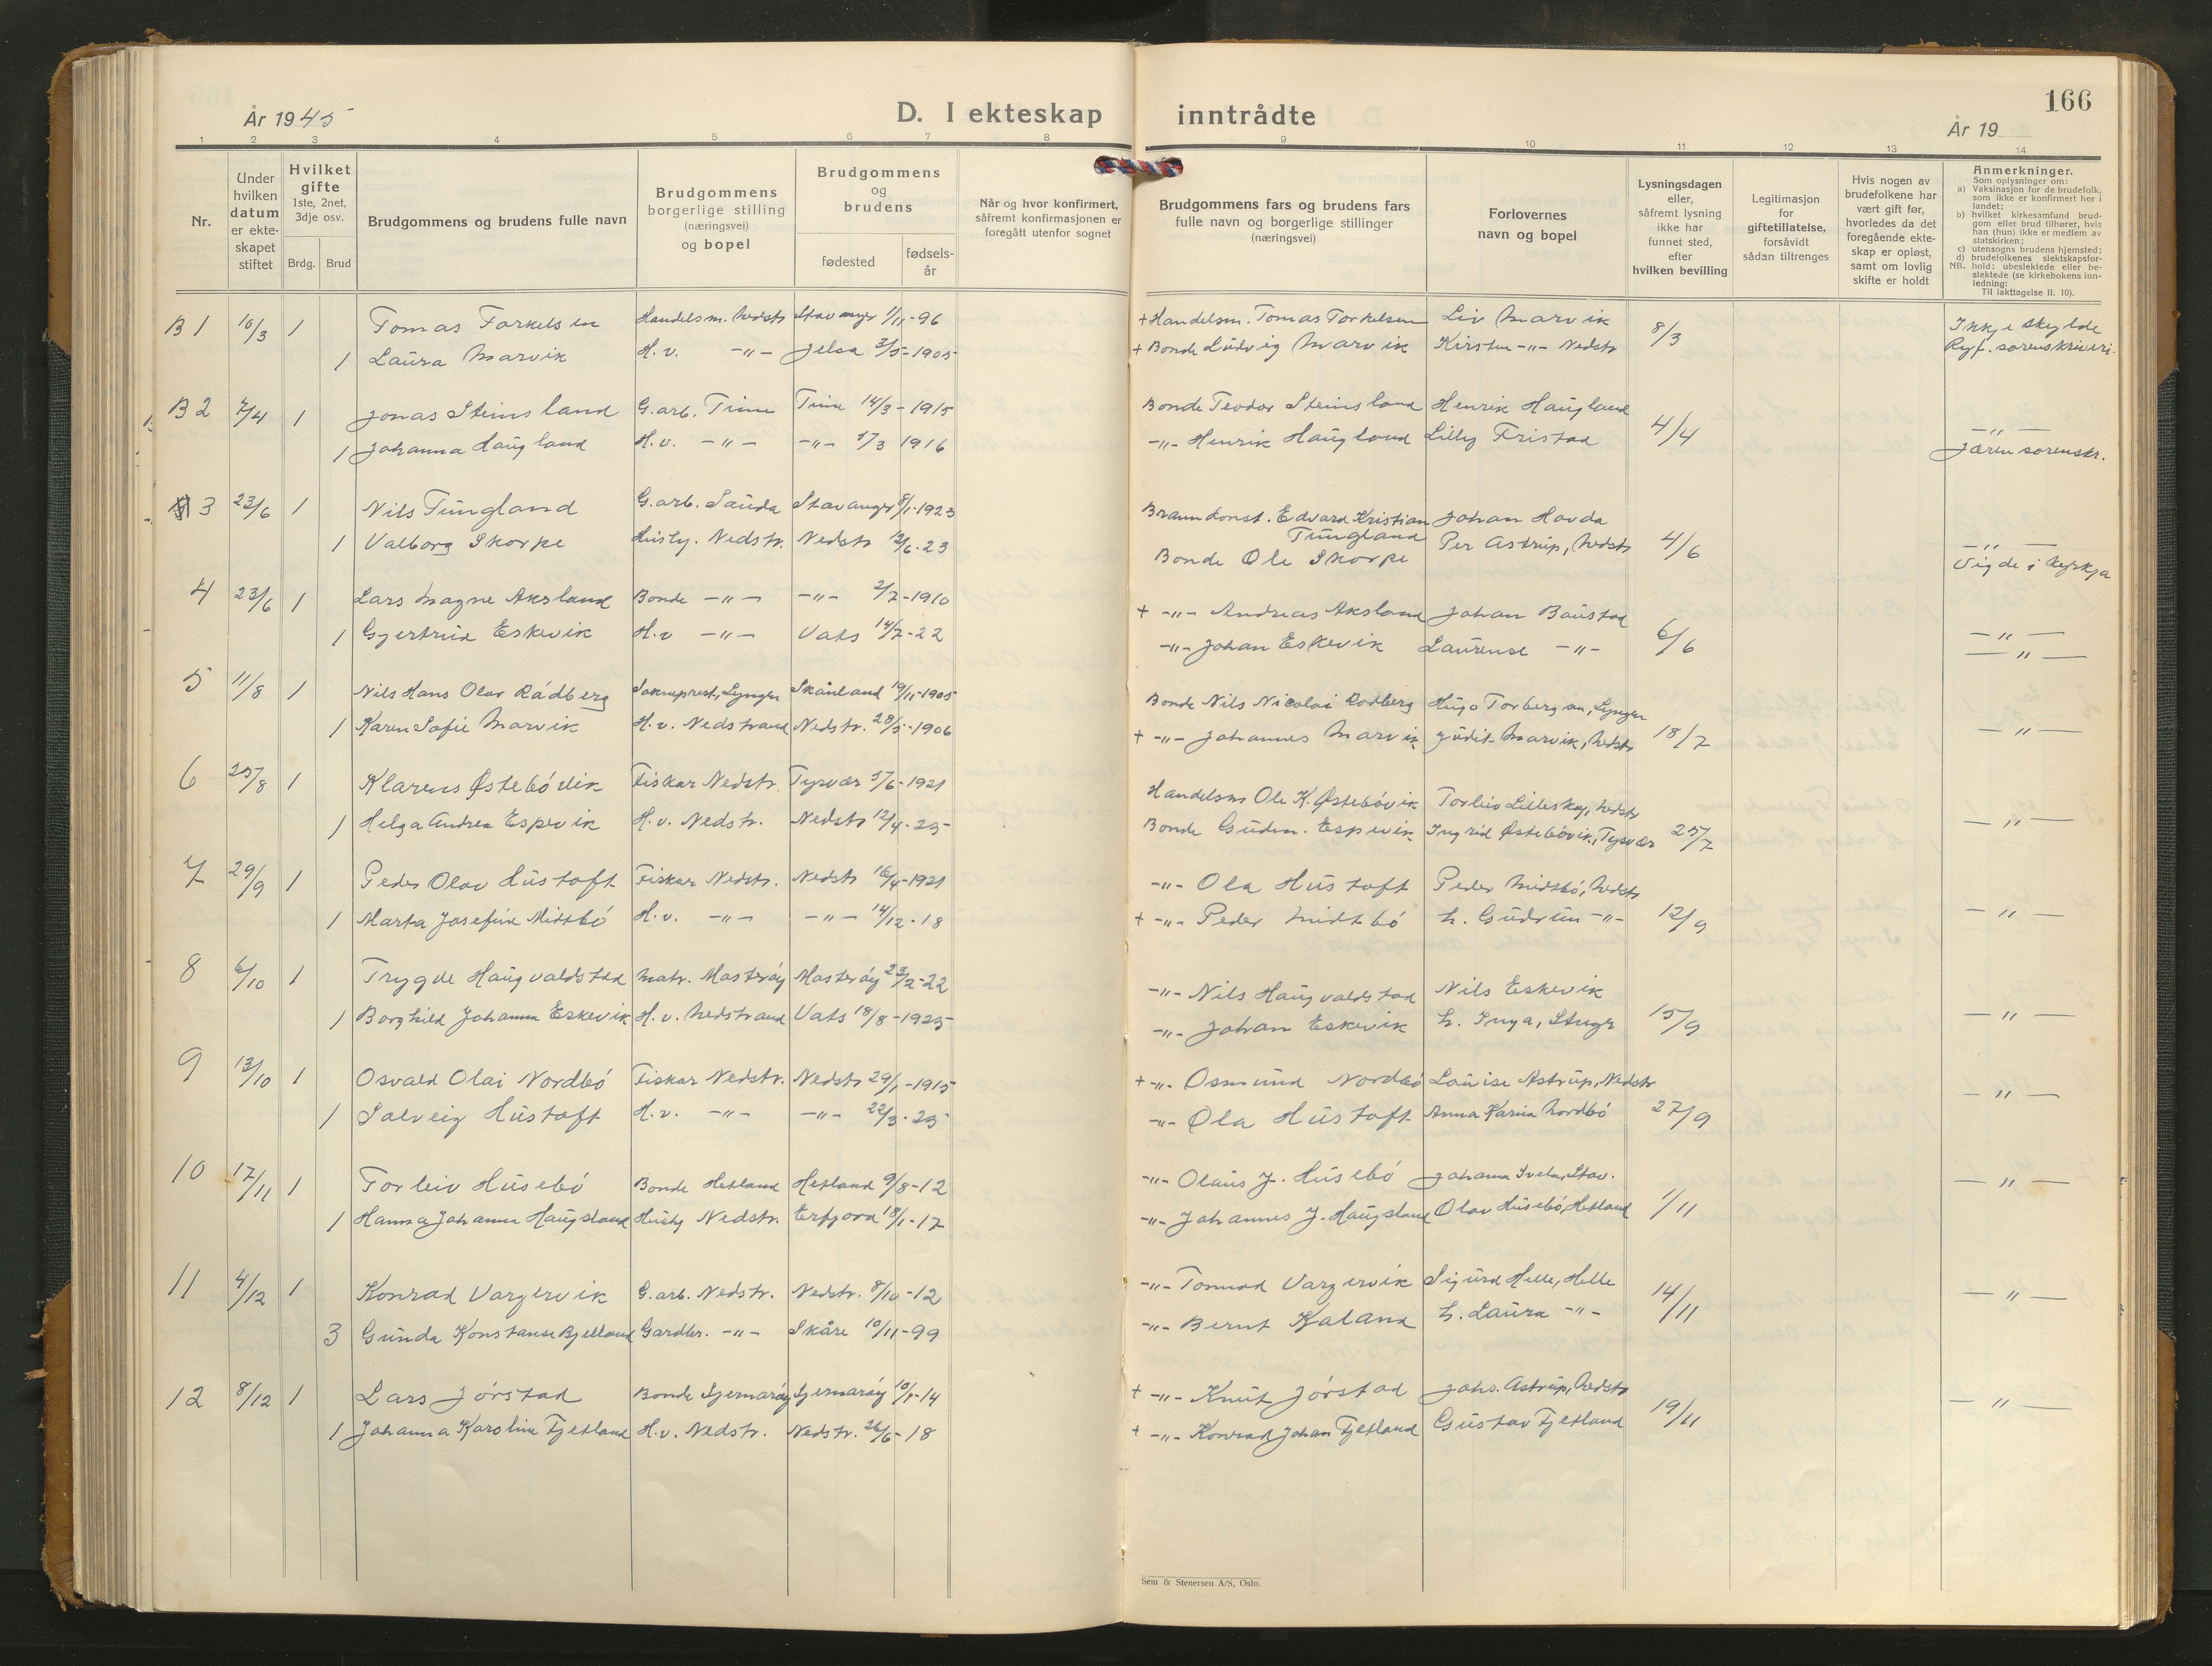 År 1945
D. I ekteskap inntrådte
166
År 19
1 2 3 4 5 6 7 8 9 10 11 12 13 14
Nr.
Under hvilken datum er ekte-skapet stiftet
Hvilket gifte 1ste, 2net, 3dje osv.
Brdg. Brud
Brudgommens og brudens fulle navn
Brudgommens borgerlige stilling (næringsvei) og bopel
Brudgommens og brudens
fødested
fødsels-år
Når og hvor konfirmert, såfremt konfirmasjonen er foregått utenfor sognet
Brudgommens fars og brudens fars fulle navn og borgerlige stillinger (næringsvei)
Forlovernes navn og bopel
Lysningsdagen eller, såfremt lysning ikke har funnet sted, efter hvilken bevilling
Legitimasjon for giftetillatelse, forsåvidt sådan tiltrenges
Hvis nogen av brudefolkene har vært gift før, hvorledes da det foregående ekte-skap er opløst, samt om lovlig skifte er holdt
Anmerkninger.
Som oplysninger om:
a) Vaksinasjon for de brudefolk, som ikke er konfirmert her i landet;
b) hvilket kirkesamfund brud-gom eller brud tilhører, hvis han (hun) ikke er medlem av statskirken;
c) utensogns brudens hjemsted;
d) brudefolkenes slektskapsfor-hold: ubeslektede eller be-slektede (se kirkebokens inn-ledning:
NB. Til iakttagelse II. 10).
B 1 10/3 1 Tomas Torkelsen Handelsm. Nedstr Stavanger 1/11-96 + Handelsm. Tomas Torkelsen Liv Marvik 8/3 Ikkje skylde
1 Laura Marvik H.v. -"- Jelsa 3/5-1905 + Bonde Ludvig Marvik Kirsten -"- Nedstr Ryf. sorenskriveri.
B 2 7/4 1 Jonas Steinsland G.arb. Time Time 14/3-1915 Bonde Teodor Steinsland Henrik Haugland 4/4 -"-
1 Johanna Haugland H.v. -"- -"- 17/3 1916 -"- Henrik Haugland Lilly Fristad Jæren sorenskr.
3 23/6 1 Nils Tungland G.arb. Sauda Stavanger 8/1-1923 Brannkonst. Edvard Kristian Tungland Johan Hovda 4/6 -"-
1 Valborg Skorpe Husty. Nedstr. Nedstr 12/6-23 Bonde Ole Skorpe Per Astrup, Nedstr Vigde i kyrkja
4 23/6 1 Lars Magne Aksland Bonde -"- -"- 2/7-1910 + -"- Andreas Aksland Johan Baustad 6/6 -"-
1 Gjertrud Eskevik H.v -"- Vats 14/7-22 -"- Johan Eskevik Laurense -"- -"-
5 11/8 1 Nils Hans Olav Rádberg Sokneprest, Lyngen Skånland 19/11-1905 Bonde Nils Nicolai Rodberg Hugo Torbergsen, Lyngen 18/7 -"-
1 Karen Sofie Marvik H.v. Nedstrand Nedstr. 28/5-1906 + -"- Johannes Marvik Judit Marvik, Nedstr
6 25/8 1 Klarens Østebóvik Fiskar Nedstr. Tysvær 5/6-1921 Handelsm Ole K. Østebóvik Torleiv Lilleskog, Nedstr 25/7 -"-
1 Helga Andrea Espevik H.v. Nedstr. Nedstr 12/4-25 Bonde Gudm. Espevik Ingrid Østebóvik, Tysvær
7 29/9 1 Peder Olav Hustoft Fiskar Nedstr. Nedstr 16/4-1921 -"- Ola Hustoft Peder Midtbó, Nedstr 12/9 -"-
1 Marta Josefine Midtbó H.v. -"- -"- 14/12-18 + -"- Peder Midtbó h. Gudrun -"-
8 6/10 1 Trygve Haugvaldstad Matr. Masteróy Masteróy 23/2-22 -"- Nils Haugvaldstad Nils Eskevik 15/9 -"-
1 Borghild Johanna Eskevik H.v. Nedstrand Vats 18/8-1925 -"- Johan Eskevik h. Inga, Stvgr
9 13/10 1 Osvald Olai Nordbó Fiskar Nedstr. Nedstr 29/1-1915 + -"- Osmund Nordbó Louise Astrup, Nedstr 27/9 -"-
1 Solveig Hustoft H.v. -"- -"- 22/3-25 -"- Ola Hustoft Anna Karin Nordbó
10 17/11 1 Torleiv Husebó Bonde Hetland Hetland 9/8-12 -"- Olaus J. Husebó Johanna Tveita, Stav. 1/11 -"-
1 Hanna Johanna Haugsland Husty Nedstr. Erfjord 18/1-17 -"- Johannes J. Haugsland Olav Husebó, Hetland
11 4/12 1 Konrad Vargervik G.arb. Nedstr. Nedstr. 8/10-12 -"- Tormod Vargervik Sigurd Helle, Helle 14/11 -"-
3 Gunda Konstanse Bjelland Gardbr. -"- Skåre 10/11-99 -"- Bernt Kaland h. Laura -"-
12 8/12 1 Lars Jórstad Bonde Sjernaróy Sjernaróy 10/1-14 + -"- Knut Jórstad Johs. Astrup, Nedstr 19/11 -"-
1 Johanna Karoline Fjetland H.v. Nedstr. Nedstr. 26/6-18 + -"- Konrad Johan Fjetland Gustav Fjetland
Sem & Stenersen A/S, Oslo.